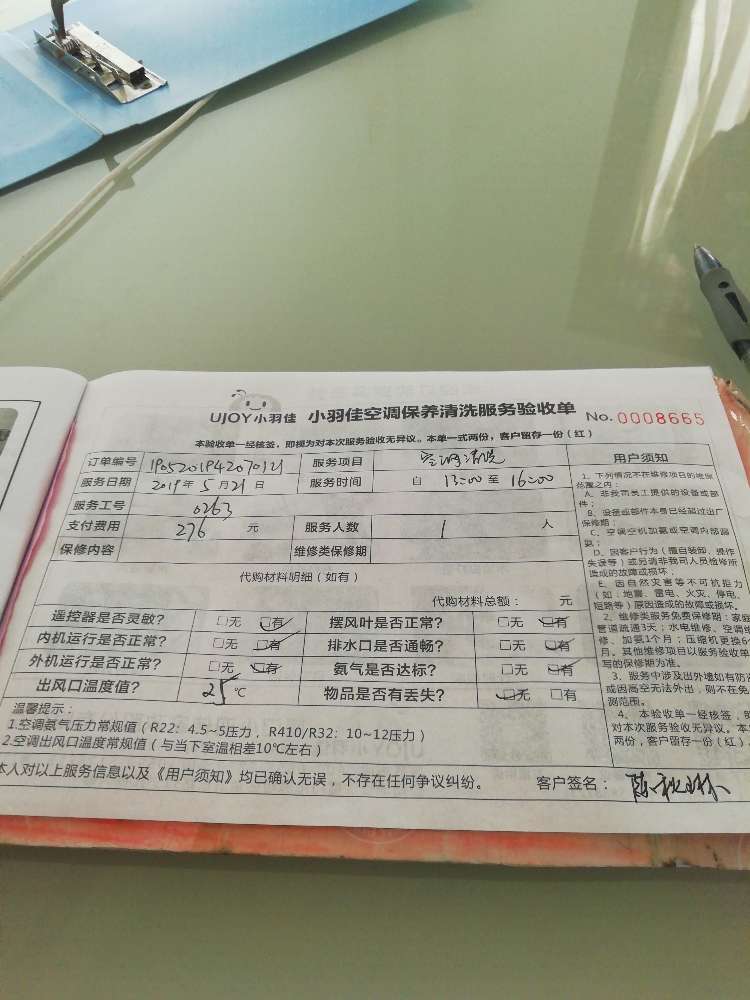 UJOY小羽佳 小羽佳空调保养清洗服务验收单 No.0008665
本验收单一经核签，即视为对本次服务验收无异议。本单一式两份，客户留存一份（红）
订单编号 1905201942070121 服务项目 空调清洗
服务日期 2019年5月21日 服务时间 自 13:00 至 16:00
服务工号 0263
支付费用 276 元 服务人数 1 人
保修内容 维修类保修期
代购材料明细（如有）
代购材料总额： 元
遥控器是否灵敏？ □无 ☑有 摆风叶是否正常？ □无 ☑有
内机运行是否正常？ □无 ☑有 排水口是否通畅？ □无 ☑有
外机运行是否正常？ □无 ☑有 氨气是否达标？ □无 ☑有
出风口温度值？ 25℃ 物品是否有丢失？ ☑无 □有
温馨提示：
1.空调氨气压力常规值（R22：4.5~5压力，R410/R32：10~12压力）
2.空调出风口温度常规值（与当下室温相差10℃左右）
本人对以上服务信息以及《用户须知》均已确认无误，不存在任何争议纠纷。 客户签名：
用户须知
1、下列情况不在维修项目的维保
范围之内：
A、非我司员工提供的设备或部
件；
B、设备或部件本身已经超过出厂
保修期；
C、空调空机加氨或空调内部漏
氨；
D、因客户行为（擅自装卸、操作
失误等）或另请非我司人员检修所
造成的故障或损坏；
E、因自然灾害等不可抗拒力
（如：地震、雷电、火灾、停电、
短路等）原因造成的故障或损坏。
2、维修类服务免费保修期：家庭
管道疏通3天；水电维修、空调维
修、加氨1个月；压缩机更换6个
月。其他维修项目以服务验收单
写的保修期为准。
3、服务中涉及出外墙如有防盗
或因高空无法外出，则不在务
测范围。
4、本验收单一经核签，即
对本次服务验收无异议。本单
两份，客户留存一份（红）